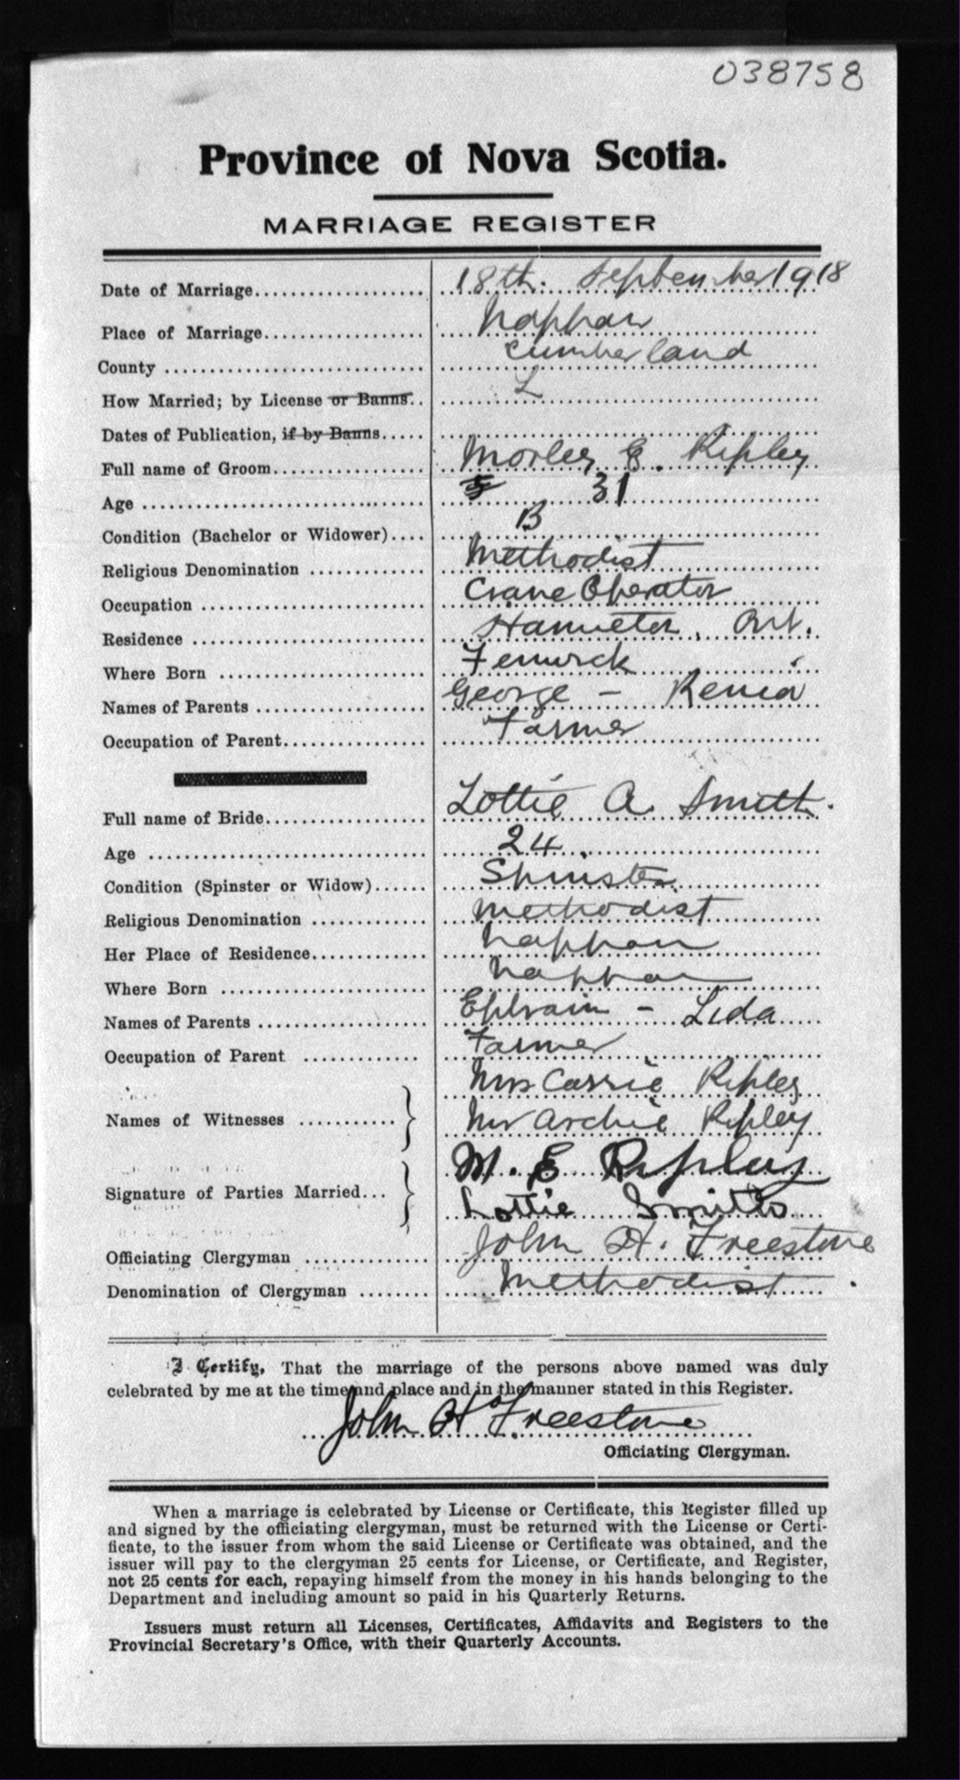 038758
Province of Nova Scotia.
MARRIAGE REGISTER
Date of Marriage.................... 18th. September 1918
Place of Marriage................... Nappan
County .............................. Cumberland
How Married; by License or Banns.. L
Dates of Publication, if by Banns.....
Full name of Groom.................. Morley E. Ripley
Age ................................ 31
Condition (Bachelor or Widower).... B
Religious Denomination ............. Methodist
Occupation .......................... Crane Operator
Residence ........................... Hamilton, Ont.
Where Born ......................... Fenwick
Names of Parents ................... George -
Occupation of Parent................ Farmer
Full name of Bride.................. Lottie A Smith.
Age ................................ 24.
Condition (Spinster or Widow)...... Spinster
Religious Denomination ............. Methodist
Her Place of Residence............. Nappan
Where Born ......................... Nappan
Names of Parents ................... Ephraim - Lida
Occupation of Parent ............... Farmer
Mrs Carrie Ripley
Names of Witnesses ........... } Mr Archie Ripley
M. E Ripley
Signature of Parties Married... } Lottie Smith
Officiating Clergyman .............. John H. Freestone
Denomination of Clergyman ........ Methodist.
I Certify, That the marriage of the persons above named was duly
celebrated by me at the time and place and in the manner stated in this Register.
John H Freestone
Officiating Clergyman.
When a marriage is celebrated by License or Certificate, this Register filled up
and signed by the officiating clergyman, must be returned with the License or Certi-
ficate, to the issuer from whom the said License or Certificate was obtained, and the
issuer will pay to the clergyman 25 cents for License, or Certificate, and Register,
not 25 cents for each, repaying himself from the money in his hands belonging to the
Department and including amount so paid in his Quarterly Returns.
Issuers must return all Licenses, Certificates, Affidavits and Registers to the
Provincial Secretary's Office, with their Quarterly Accounts.